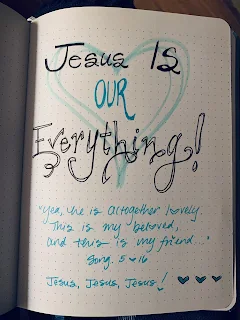 Jesus Is
OUR
Everything!
"Yea, he is altogether lovely.
This is my beloved,
and this is my friend..."
Song. 5 ♥ 16
Jesus, Jesus, Jesus! ♥ ♥ ♥